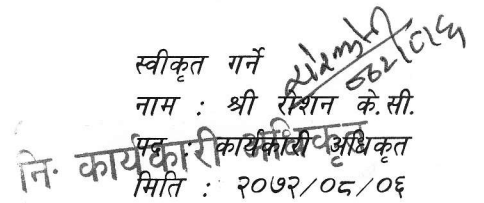 स्वीकृत गर्ने
नाम : श्री रोशन के.सी.
पद : कार्यकारी अधिकृत
नि. कार्यकारी अधिकृत
मिति : २०७२/०८/०६